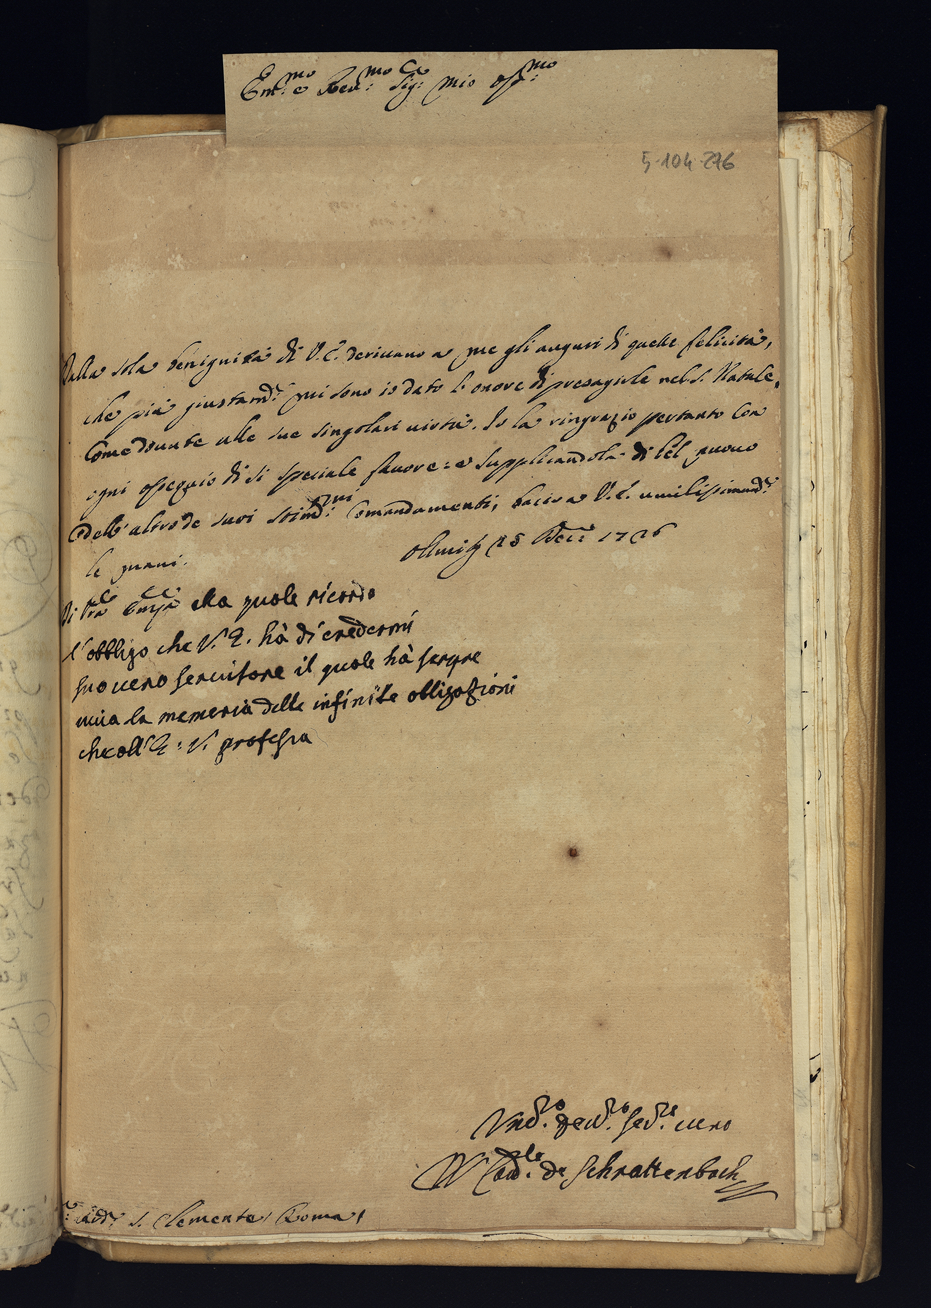 Em:mo e Reu:mo Sig:re mio oss:mo
5-104-276
Dalla sola benignità di V.E. deriuano a me gli auguri di quelle felicità,
che più giustam:te mi sono io dato l'onore di presagirle nel S. Natale,
come douute alle sue singolari uirtù. Io la ringrazio pertanto con
ogni ossequio di sì speciale fauore: e supplicandola di
dell'altro de suoi stim:mi Comandamenti, bacio a V.E. umilissimam:te
le mani. Olmitz 25 Dec:re 1726
Di V:ra Em:za alla quale ricordo
l'obbligo che V. E. hà di credermi
suo uero seruitore il quale hà sempre
uiua la memoria delle infinite obligazioni
che all'E: V. professa
Um:o deu:mo ser:re uero
W Card:le de Schrattenbach
S. Clemente Roma